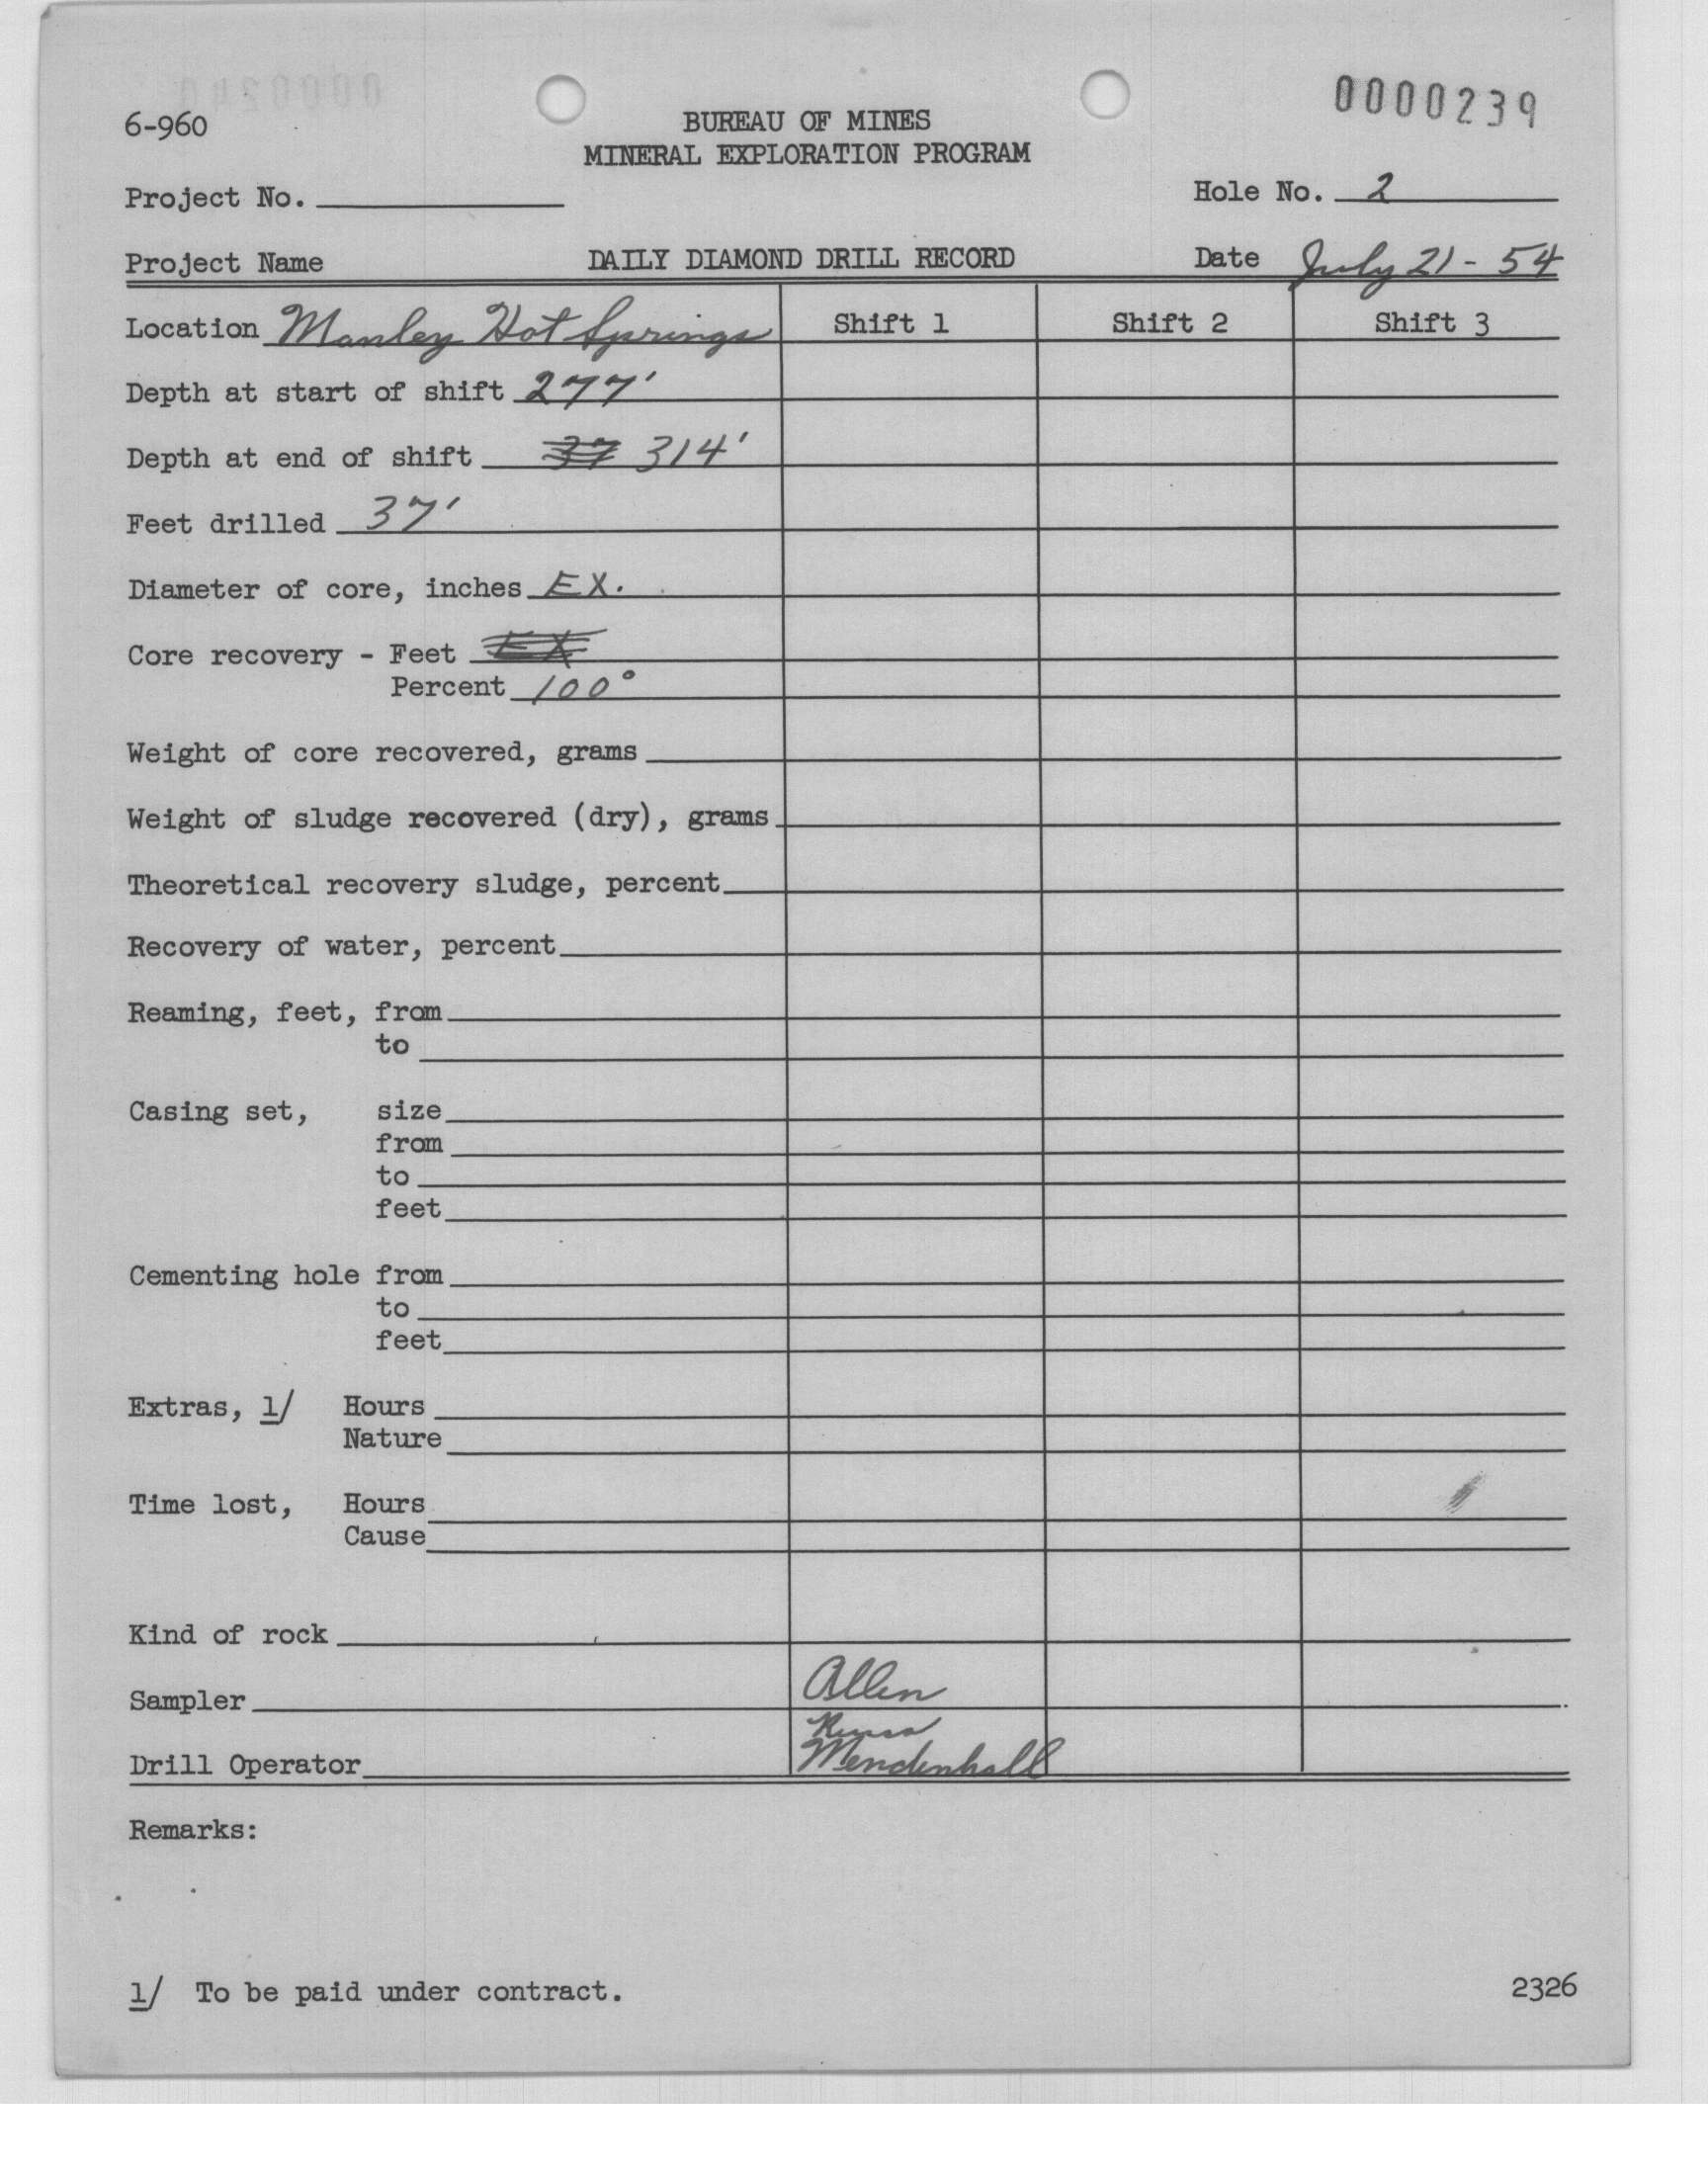 0000239
6-960
BUREAU OF MINES
MINERAL EXPLORATION PROGRAM
Project No.
Hole No. 2
Project Name DAILY DIAMOND DRILL RECORD Date July 21 - 54
Location Manley Hot Springs Shift 1 Shift 2 Shift 3
Depth at start of shift 277'
Depth at end of shift 37 314'
Feet drilled 37'
Diameter of core, inches EX.
Core recovery - Feet EX
Percent 100°
Weight of core recovered, grams
Weight of sludge recovered (dry), grams
Theoretical recovery sludge, percent
Recovery of water, percent
Reaming, feet, from
to
Casing set, size
from
to
feet
Cementing hole from
to
feet
Extras, 1/ Hours
Nature
Time lost, Hours
Cause
Kind of rock
Sampler Allen
Drill Operator Mendenhall
Remarks:
1/ To be paid under contract.
2326